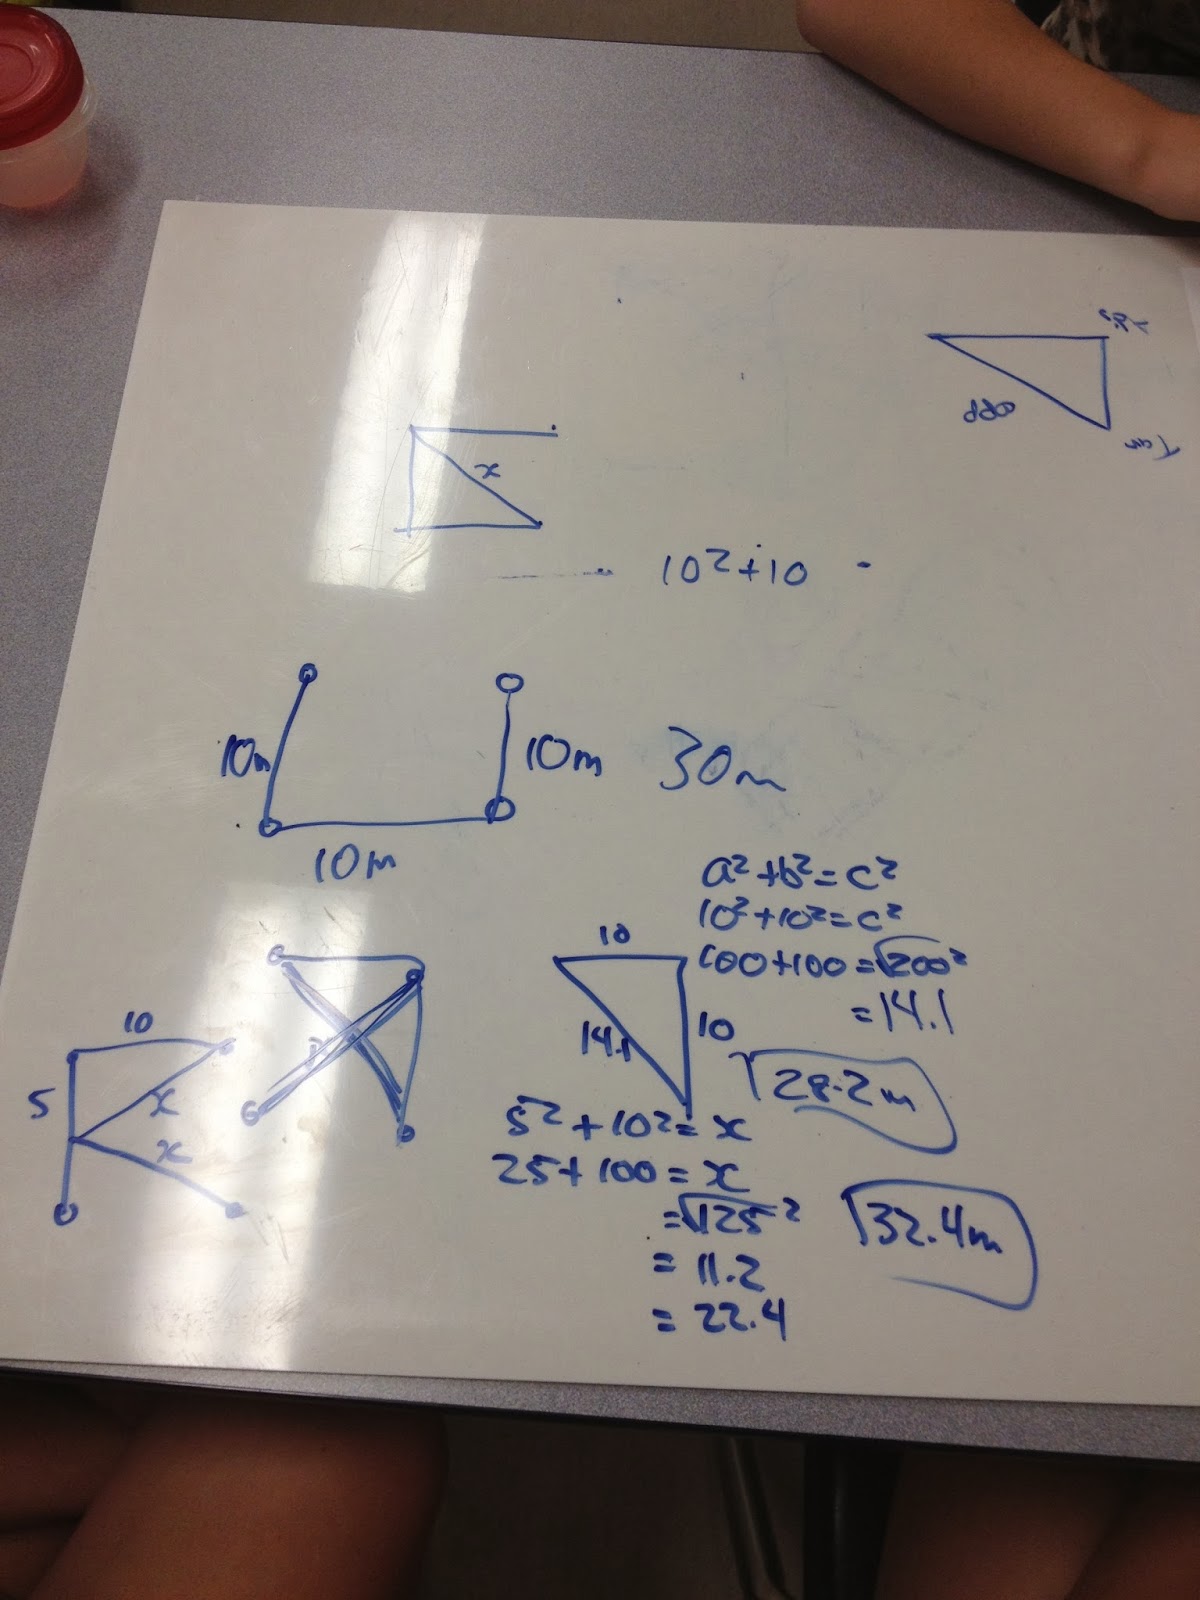 opp
Tan
x
10²+10
10m
10m
30m
10m
a²+b²=c²
10²+10²=c²
10
100+100=√200²
=14.1
10
14.1
10
28.2m
5
x
x
5²+10²=x
25+100=x
=√125²
32.4m
=11.2
=22.4